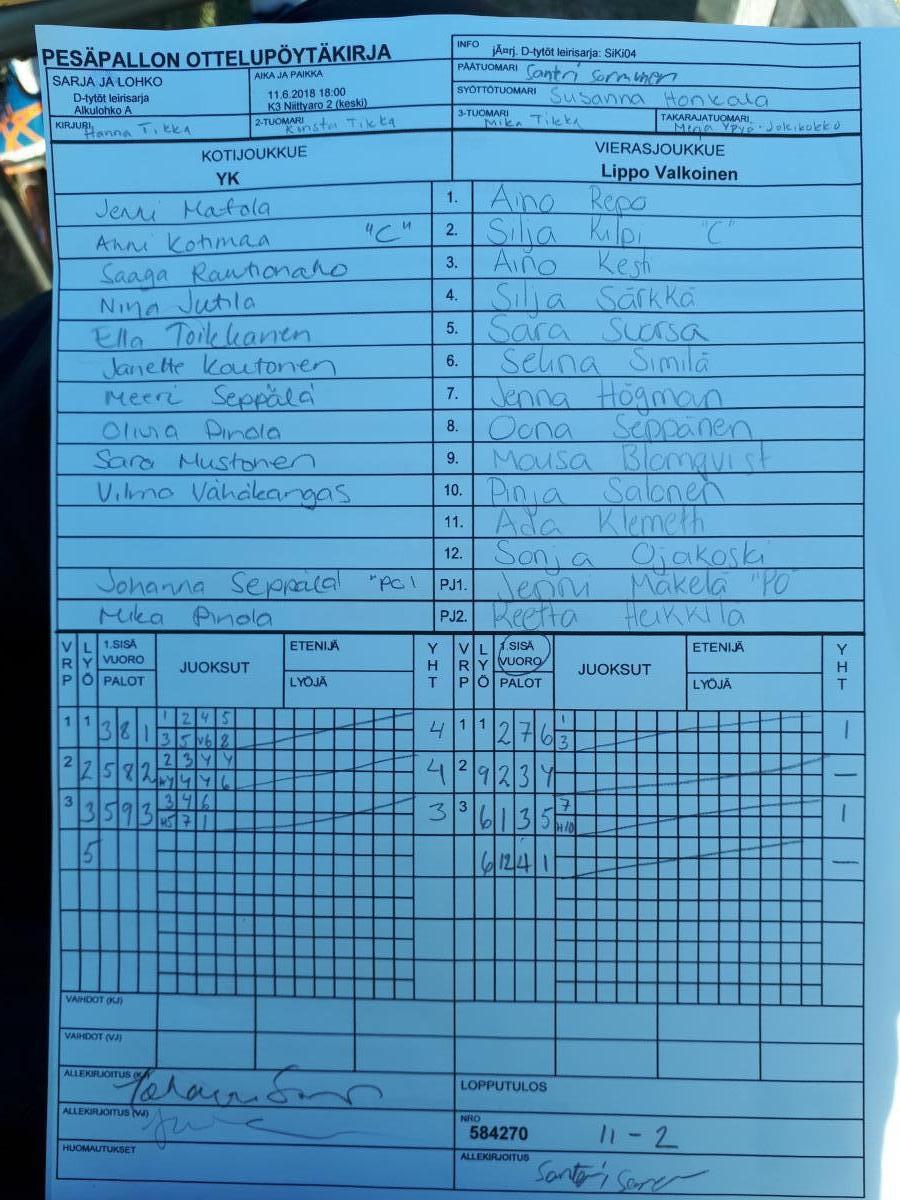 PESÄPALLON OTTELUPÖYTÄKIRJA
INFO jÄ¤rj. D-tytöt leirisarja: SiKi04
SARJA JA LOHKO
D-tytöt leirisarja
Alkulohko A
AIKA JA PAIKKA
11.6.2018 18:00
K3 Niittyaro 2 (keski)
PÄÄTUOMARI Santri
SYÖTTÖTUOMARI Susanna Honkala
KIRJURI Hanna Tikka
2-TUOMARI Tikka
3-TUOMARI Mika Tikka
TAKARAJATUOMARI
KOTIJOUKKUE
YK
VIERASJOUKKUE
Lippo Valkoinen
Jenni Matala 1. Aino Repo
Anni Kotimaa "C" 2. Silja Kilpi "C"
Saaga Rautionaho 3. Aino Kesti
Nina Jutila 4. Silja Särkkä
Ella Toikkanen 5. Sara Suorsa
Janette Koutonen 6. Selina Similä
Meeri Seppälä 7. Jenna Högman
Olivia Pinola 8. Oona Seppänen
Sara Mustonen 9. Blomqvist
Vilma Vähäkangas 10. Pinja Salonen
11. Ada Klemetti
12. Sonja Ojakoski
Johanna Seppälä PJ1. Jenni Mäkelä "PO"
Mika Pinola PJ2. Reetta Heikkilä
VRP LYÖ 1.SISÄ VUORO PALOT JUOKSUT ETENIJÄ LYÖJÄ YHT VRP LYÖ 1.SISÄ VUORO PALOT JUOKSUT ETENIJÄ LYÖJÄ YHT
1 1 3 8 1 1 2 4 5 4 1 1 2 7 6 1 1
3 5 V6 8 3
2 2 5 8 2 2 3 4 4 4 2 9 2 3 4 —
4 4 6
3 3 5 9 3 3 4 6 3 3 6 1 3 5 7 1
H5 7 1 H10
5 6 12 4 1 —
VAIHDOT (KJ)
VAIHDOT (VJ)
ALLEKIRJOITUS
LOPPUTULOS
ALLEKIRJOITUS (VJ)
NRO
584270 11 - 2
HUOMAUTUKSET
ALLEKIRJOITUS